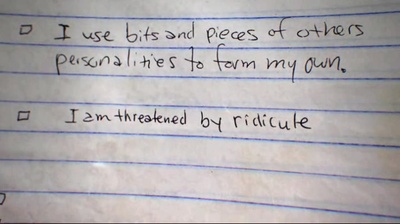 I use bits and pieces of others
personalities to form my own.
I am threatened by ridicule